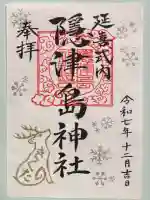 延喜式内
隠津島神社
奉拝
令和七年十二月吉日